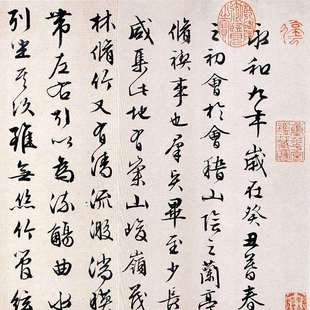 永和九年歲在癸丑暮春
之初會於會稽山陰之蘭亭
脩禊事也群賢畢至少長
咸集此地有崇山峻嶺茂
林脩竹又有清流激湍暎
帶左右引以為流觴曲水
列坐其次雖無絲竹管絃